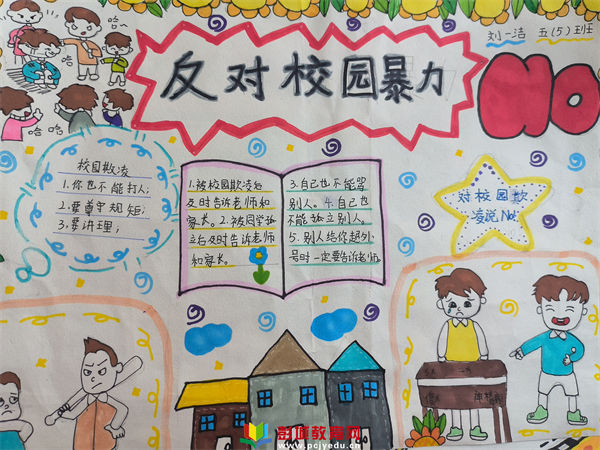 哈
哈
哈
哈
反对校园暴力
刘一洁 五(5)班
NO
校园欺凌
1.你也不能打人;
2.要遵守规矩;
3.要讲理;
1.被校园欺凌后
及时告诉老师和
家长。2.被同学孤
立后及时告诉老师
和家长。
3.自己也不能骂
别人。4.自己也
不能孤立别人。
5.别人给你起外
号时一定要告诉老师。
对校园欺
凌说No!
彭城教育网
www.pcjyedu.cn